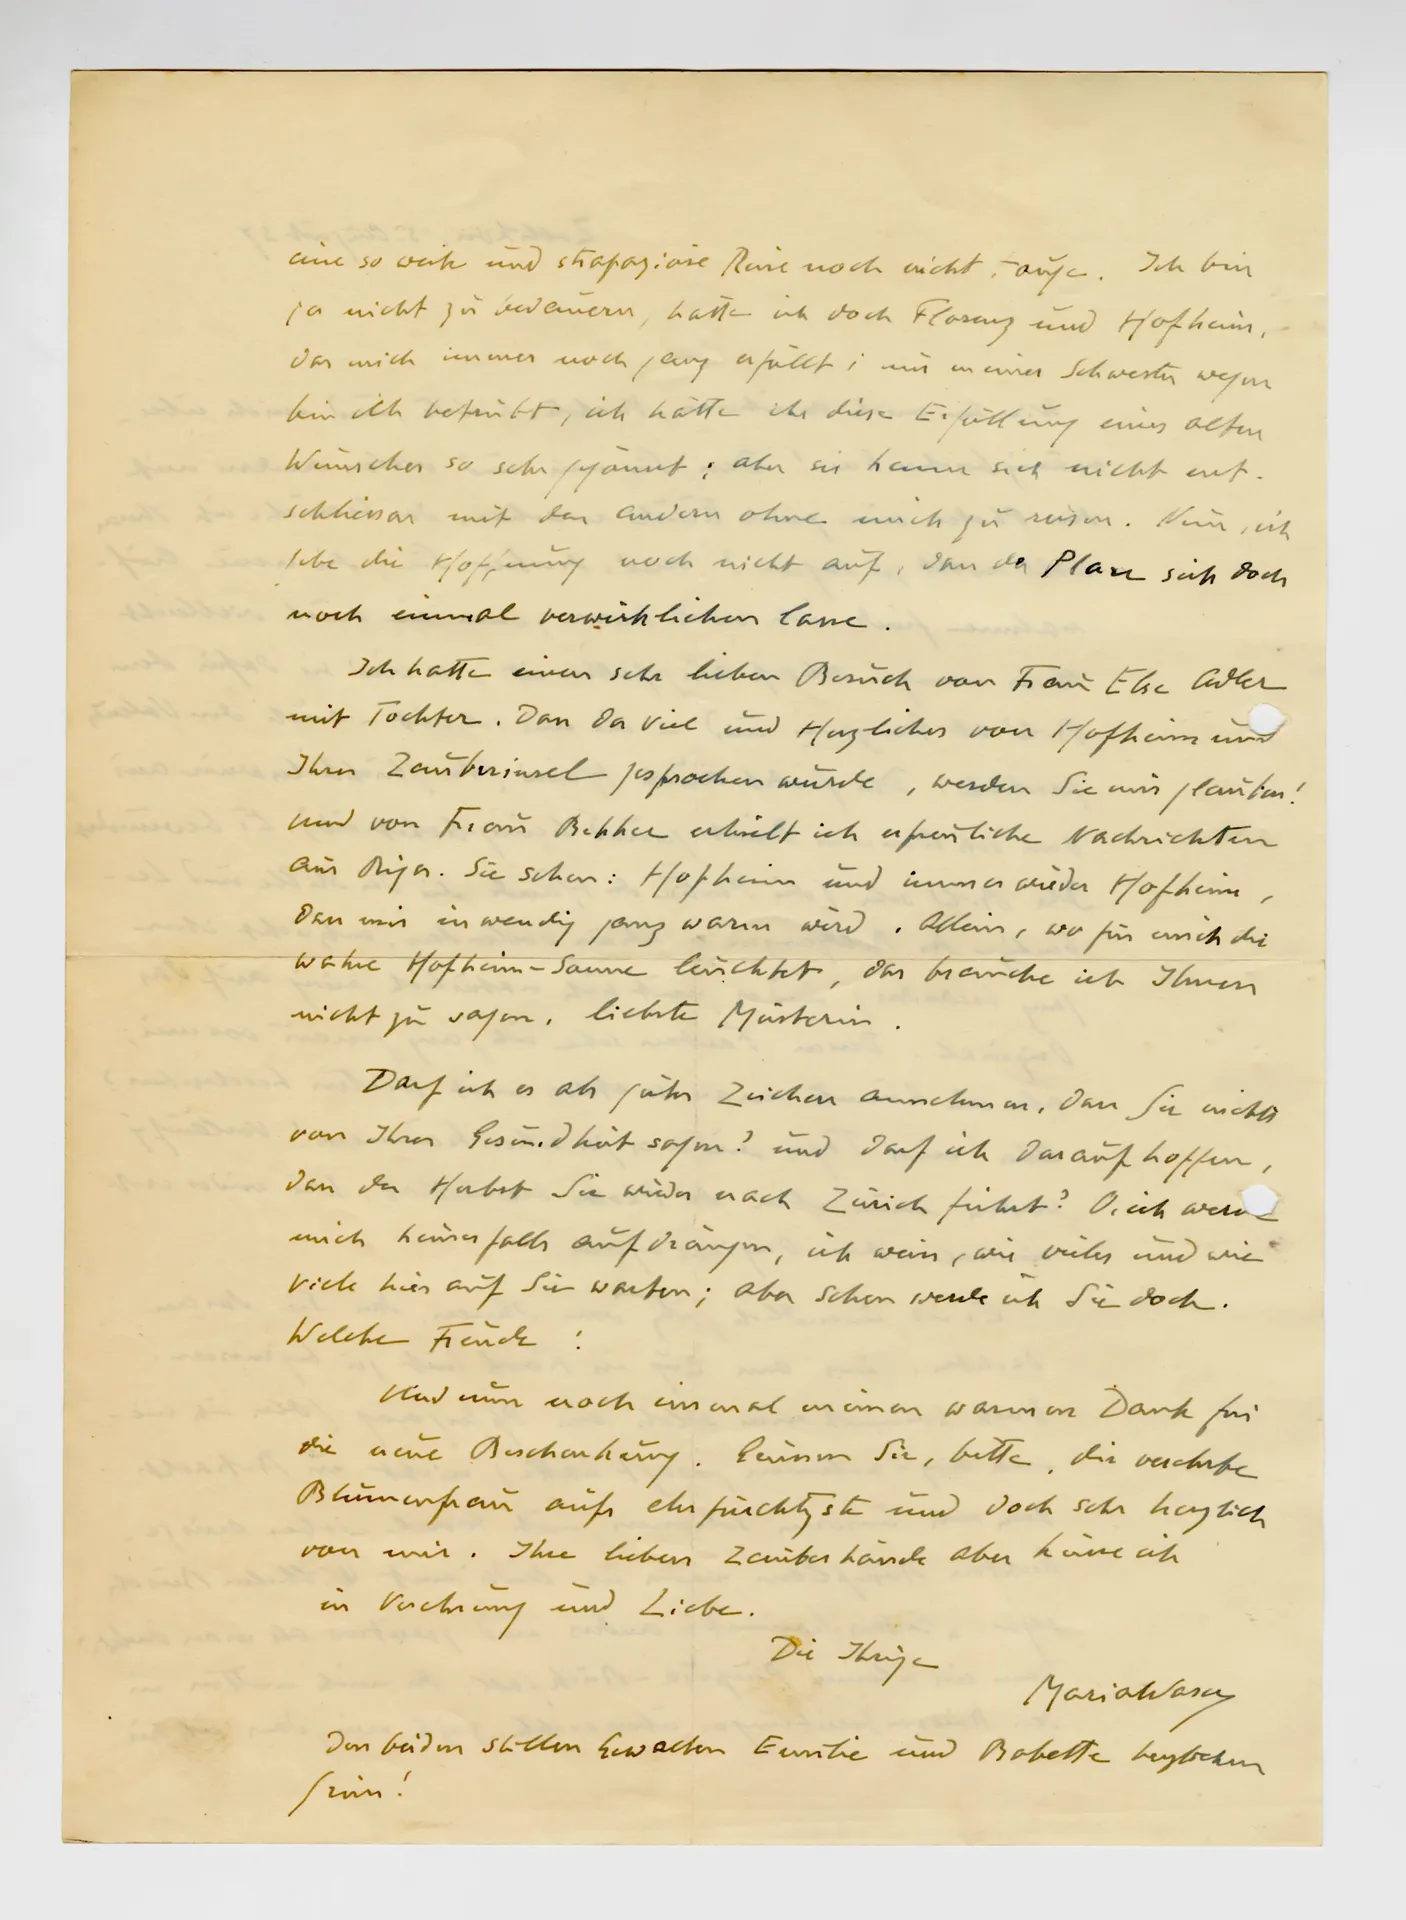 eine so weite und strapaziöse Reise noch nicht tauge. Ich bin
ja nicht zu bedauern, hatte ich doch Florenz und Hofheim,
das mich immer noch ganz erfüllt; nur meiner Schwester wegen
bin ich betrübt, ich hätte ihr diese Erfüllung eines alten
Wunsches so sehr gegönnt; aber sie kann sich nicht ent-
schliessen mit den andern ohne mich zu reisen. Nun, ich
gebe die Hoffnung noch nicht auf, dass der Plan sich doch
noch einmal verwirklichen lasse.
Ich hatte einen sehr lieben Besuch von Frau Else Adler
mit Tochter. Dass da viel und Herzliches von Hofheim und
Ihrer Zauberinsel gesprochen wurde, werden Sie mir glauben!
und von Frau Bekker erhielt ich erfreuliche Nachrichten
aus Riga. Sie sehen: Hofheim und immer wieder Hofheim,
dass mir inwendig ganz warm wird. Allein, wo für mich die
wahre Hofheim-Sonne leuchtet, das brauche ich Ihnen
nicht zu sagen, liebste Meisterin.
Darf ich es als gutes Zeichen annehmen, dass Sie nichts
von Ihrer Gesundheit sagen? und darf ich darauf hoffen,
dass der Herbst Sie wieder nach Zürich führt? O, ich werde
mich keinesfalls aufdrängen, ich weiss, wie vieles und wie
viele hier auf Sie warten; aber sehen werde ich Sie doch.
Welche Freude!
Und nun noch einmal meinen warmen Dank für
die neue Beschenkung. Grüssen Sie, bitte, die verehrte
Blumenfrau aufs ehrfürchtigste und doch sehr herzlich
von mir. Ihre lieben Zauberhände aber küsse ich
in Verehrung und Liebe.
Die Ihrige
Maria Waser
Den beiden stillen Gewalten Emilie und Babette herzlichen
Gruss!